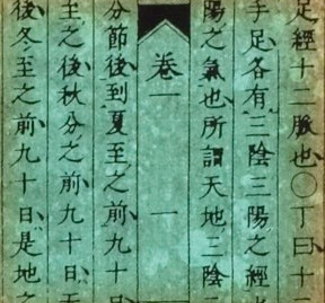 足經十二脉也○丁曰十二
手足各有三陰三陽之經
陽之氣也所謂天地三陰
卷一 一
分節後到夏至之前九十日
主之後秋分之前九十日
後冬至之前九十日是地之